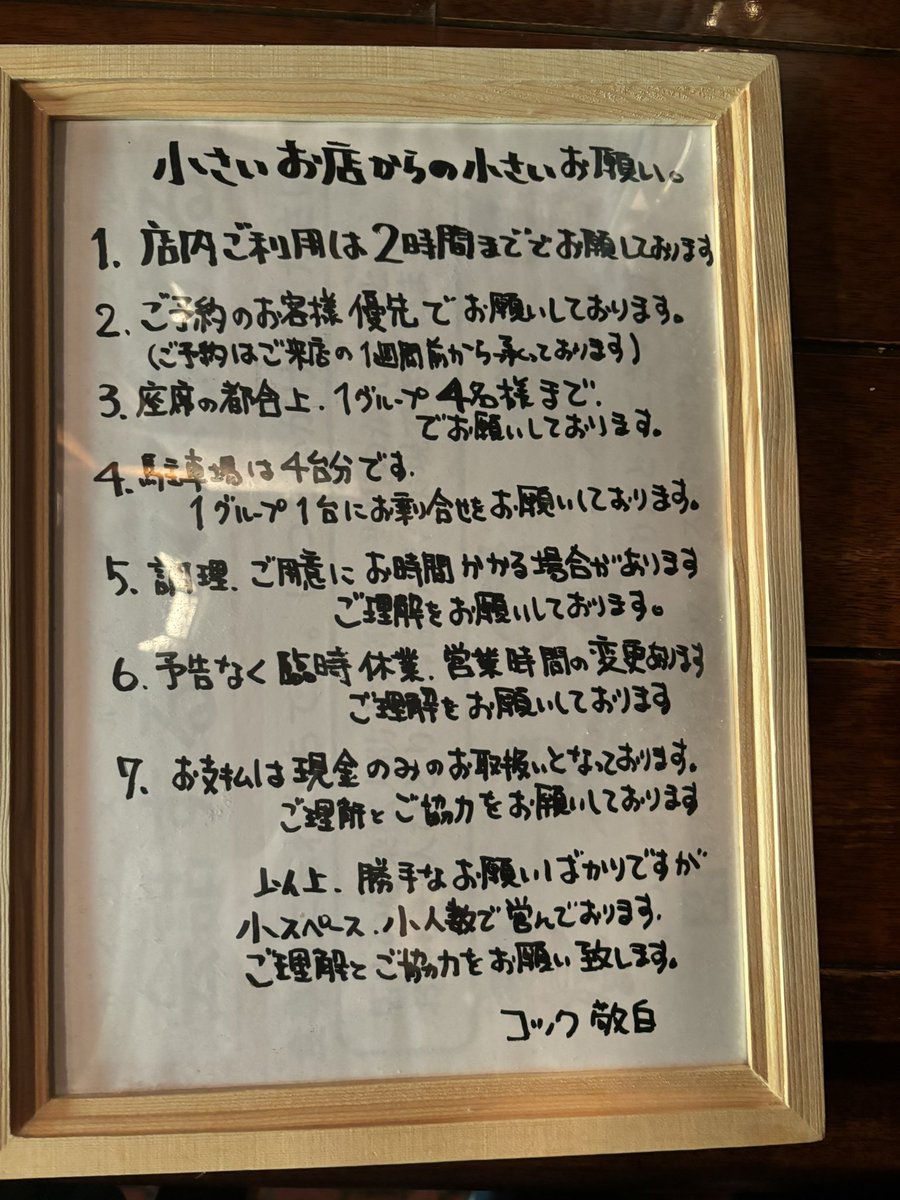 小さいお店からの小さいお願い。
1. 店内ご利用は2時間までとお願しております
2. ご予約のお客様優先でお願いしております。
(ご予約はご来店の1週間前から承っております)
3. 座席の都合上、1グループ4名様まで
でお願いしております。
4. 駐車場は4台分です.
1グループ1台にお乗り合せをお願いしております。
5. 調理、ご用意にお時間かかる場合があります
ご理解をお願いしております。
6. 予告なく臨時休業、営業時間の変更あります
ご理解をお願いしております
7. お支払は現金のみのお取扱いとなっております。
ご理解とご協力をお願いしております
以上、勝手なお願いばかりですが
小スペース、小人数で営んでおります.
ご理解とご協力をお願い致します。
コック 敬白